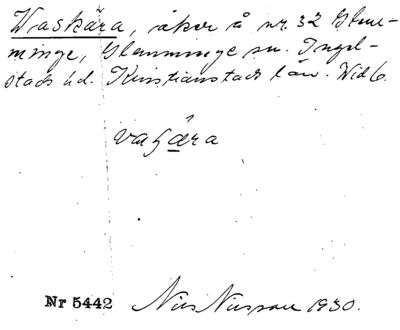 Waskära, åker å nr 32 Glem-
minge, Glemminge sn. Ingel-
stads hd. Kristianstads län. Wid 6.
Nr 5442 Nils Nilsson 1930.